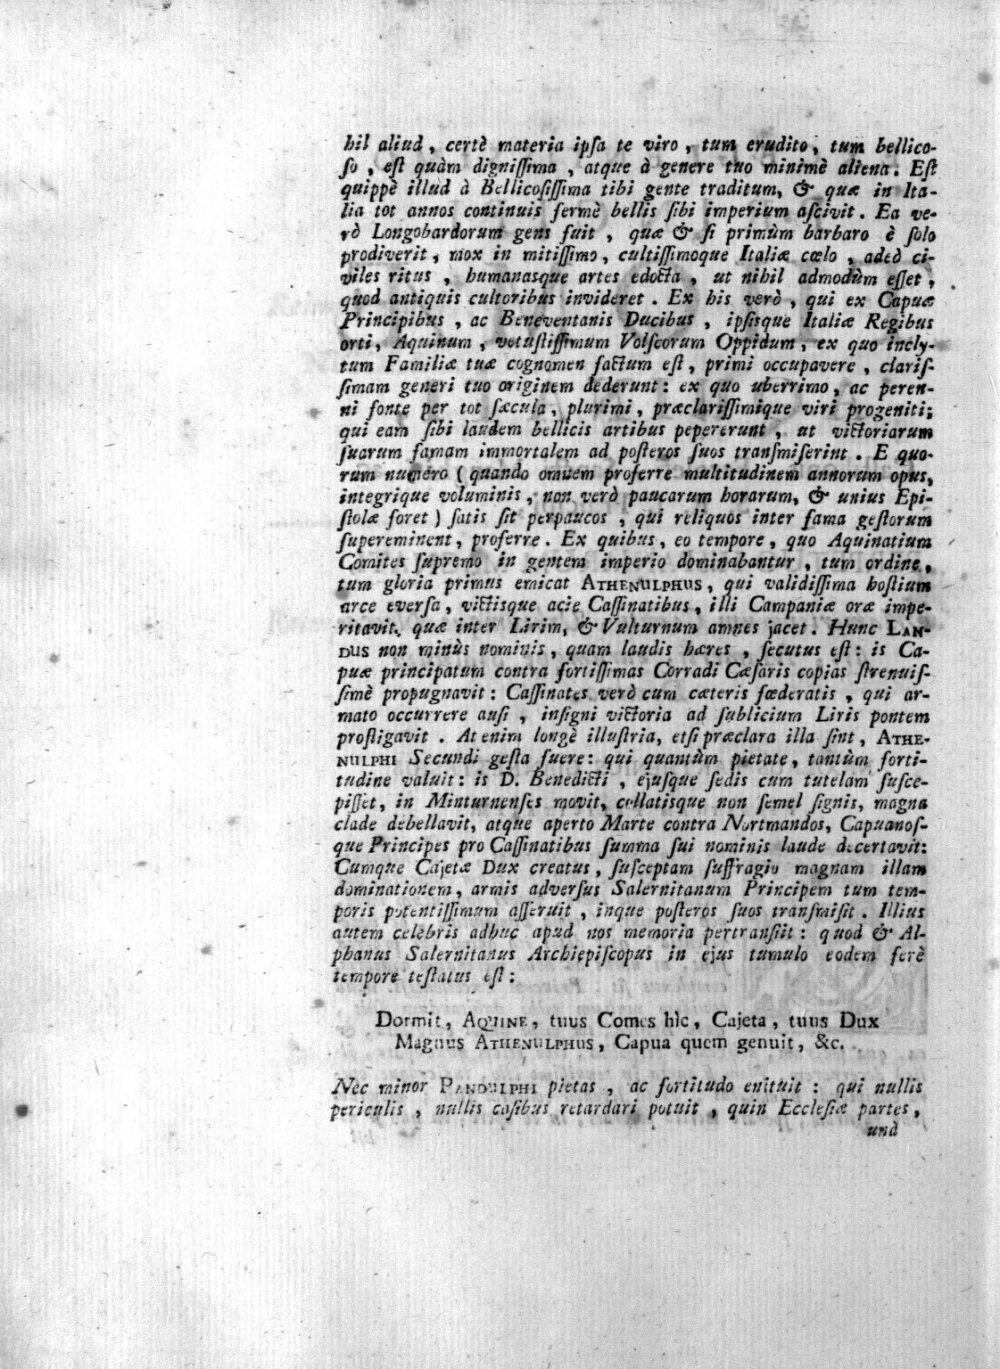 hil aliud, certè materia ipsa te viro, tum erudito, tum bellico-
so, est quàm dignissima, atque à genere tuo minimè aliena. Est
quippè illud à Bellicosissima tibi gente traditum, & quæ in Ita-
lia tot annos continuis fermè bellis sibi imperium ascivit. Ea ve-
rò Longobardorum gens fuit, quæ & si primùm barbaro è solo
prodiverit, mox in mitissimo, cultissimoque Italiæ cœlo, adeò ci-
viles ritus, humanasque artes edocta, ut nihil admodùm esset,
quod antiquis cultoribus invideret. Ex his verò, qui ex Capuæ
Principibus, ac Beneventanis Ducibus, ipsisque Italiæ Regibus
orti, Aquinum, vetustissimum Volscorum Oppidum, ex quo incly-
tum Familiæ tuæ cognomen factum est, primi occupavere, claris-
simam generi tuo originem dederunt: ex quo uberrimo, ac peren-
ni fonte per tot sæcula, plurimi, præclarissimique viri progeniti;
qui eam sibi laudem bellicis artibus pepererunt, ut victoriarum
suarum famam immortalem ad posteros suos transmiserint. E quo-
rum numero (quando omnem proferre multitudinem annorum opus,
integrique voluminis, non verò paucarum horarum, & unius Epi-
stolæ foret) satis sit perpaucos, qui reliquos inter fama gestorum
supereminent, proferre. Ex quibus, eo tempore, quo Aquinatium
Comites supremo in gentem imperio dominabantur, tum ordine,
tum gloria primus emicat ATHENULPHUS, qui validissima hostium
arce eversa, victisque acie Cassinatibus, illi Campaniæ oræ impe-
ritavit, quæ inter Lirim, & Vulturnum amnes jacet. Hunc LAN-
DUS non minùs nominis, quam laudis hæres, secutus est: is Ca-
puæ principatum contra fortissimas Corradi Cæsaris copias strenuis-
simè propugnavit: Cassinates verò cum cæteris fœderatis, qui ar-
mato occurrere ausi, insigni victoria ad sublicium Liris pontem
profligavit. At enim longè illustria, etsi præclara illa sint, ATHE-
NULPHI Secundi gesta fuere: qui quantùm pietate, tantùm forti-
tudine valuit: is D. Benedicti, ejusque sedis cum tutelam susce-
pisset, in Minturnenses movit, collatisque non semel signis, magna
clade debellavit, atque aperto Marte contra Nortmandos, Capuanos-
que Principes pro Cassinatibus summa sui nominis laude decertavit:
Cumque Cajetæ Dux creatus, susceptam suffragio magnam illam
dominationem, armis adversus Salernitanum Principem tum tem-
poris potentissimum asseruit, inque posteros suos transmisit. Illius
autem celebris adhuc apud nos memoria pertransiit: quod & Al-
phanus Salernitanus Archiepiscopus in ejus tumulo eodem ferè
tempore testatus est:
Dormit, AQUINE, tuus Comes hìc, Cajeta, tuus Dux
Magnus ATHENULPHUS, Capua quem genuit, &c.
Nec minor PANDULPHI pietas, ac fortitudo enituit: qui nullis
periculis, nullis casibus retardari potuit, quin Ecclesiæ partes,
unà